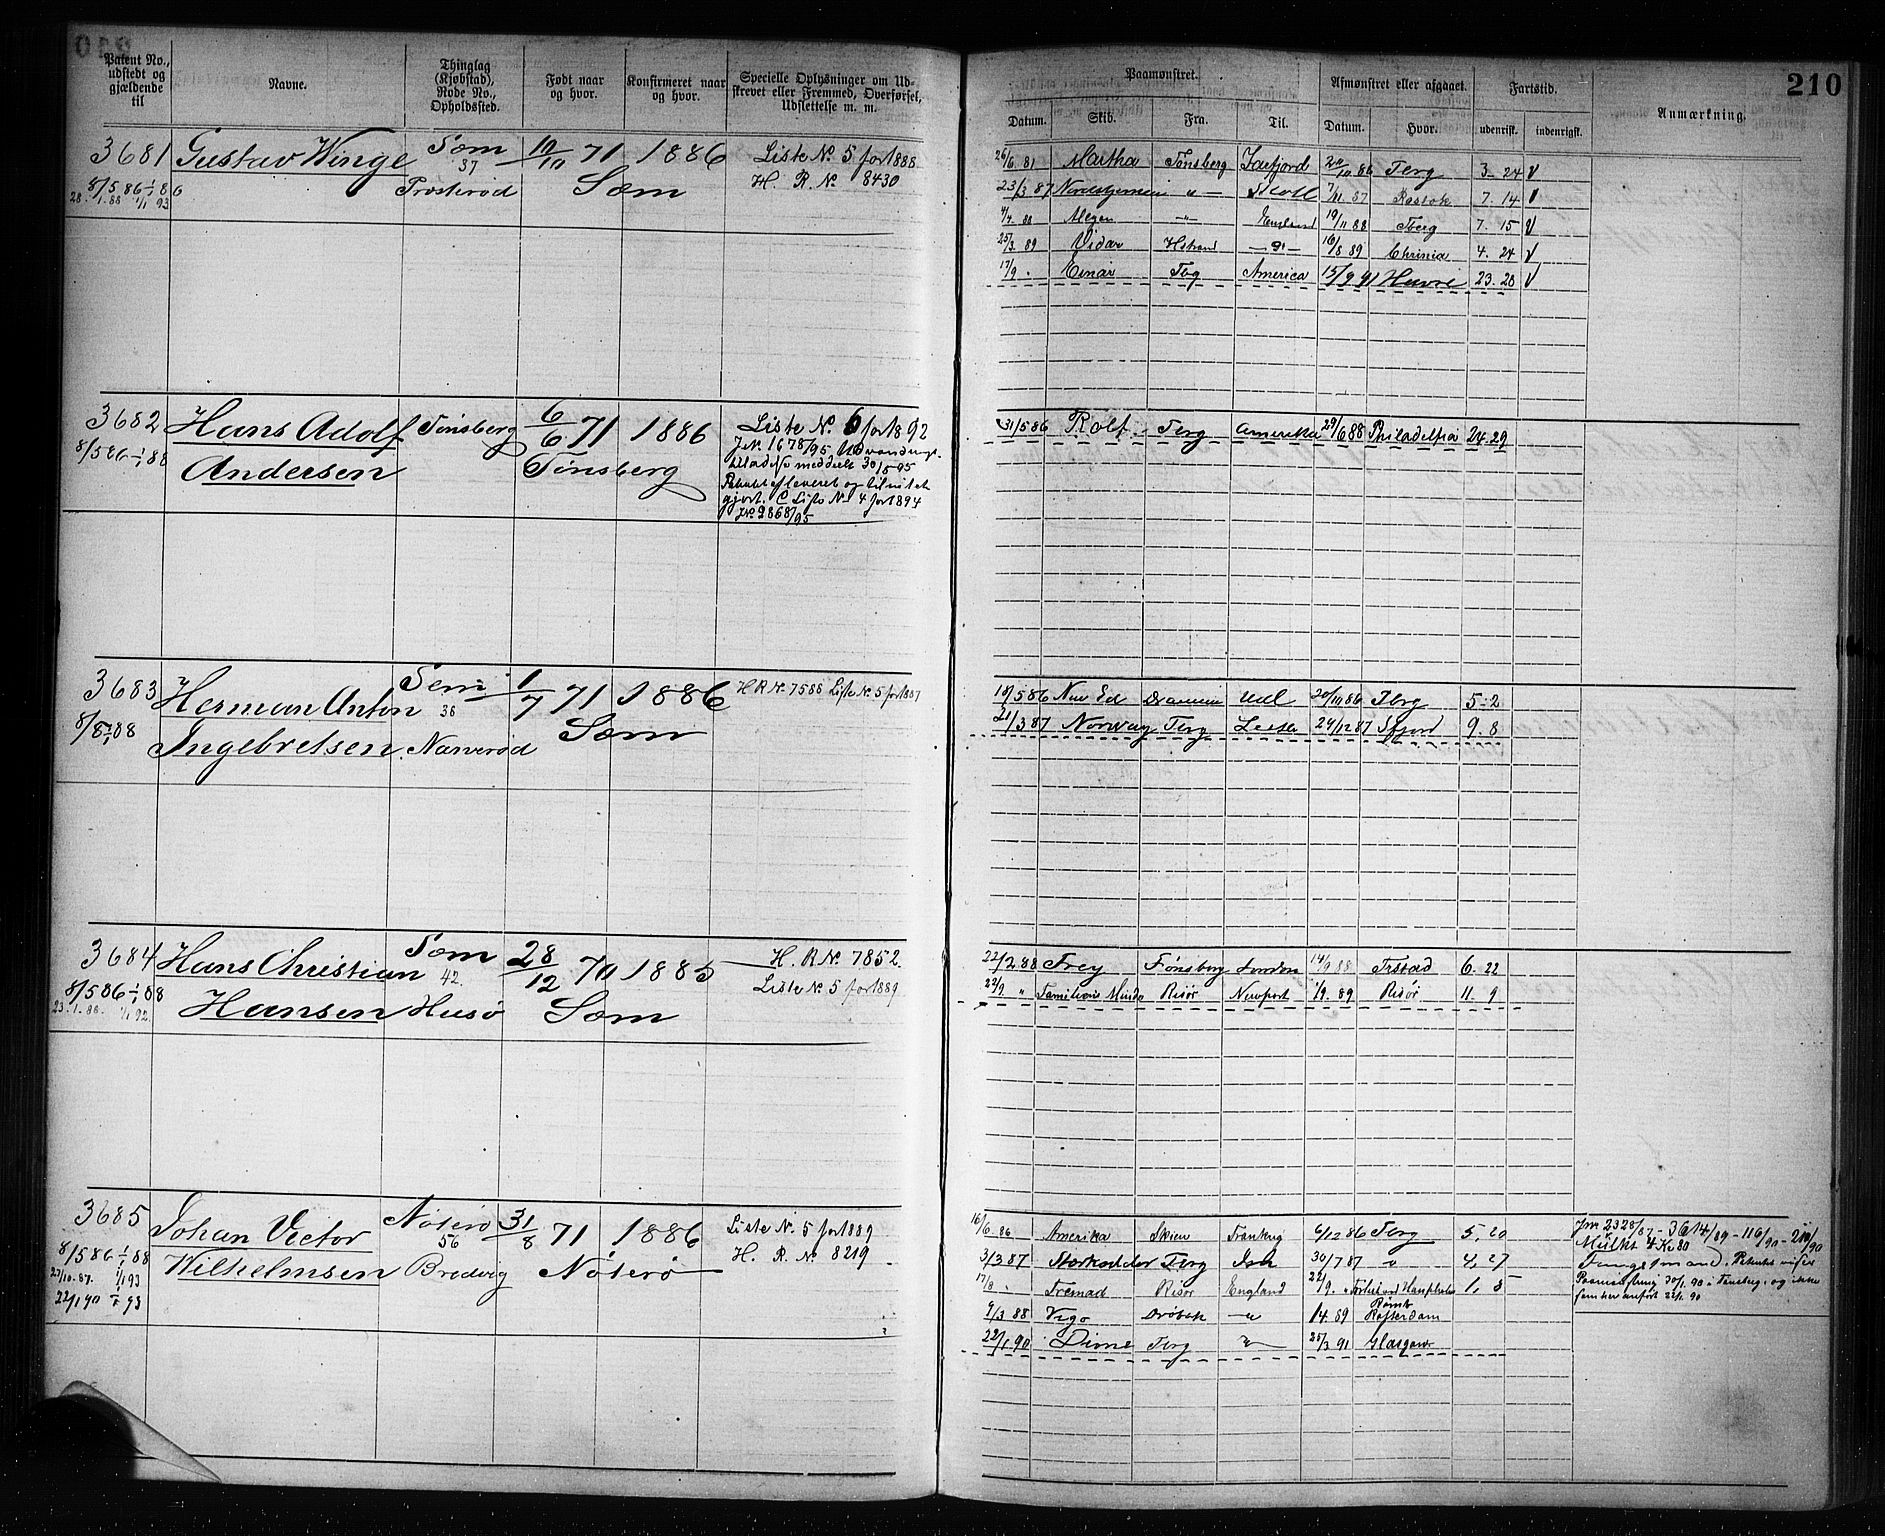 210
Patent No., udstedt og gjældende til
Navne.
Thinglag (Kjøbstad), Rode No., Opholdssted.
Født naar og hvor.
Konfirmeret naar og hvor.
Specielle Oplysninger om Udskrevet eller Fremmed, Overførsel, Udslettelse m. m.
Paamønstret.
Afmønstret eller afgaaet.
Fartstid.
Anmærkning.
Datum. Skib. Fra. Til. Datum. Hvor. udenrisk. indenrigsk.
3681 Gustav Winge Sæm 10/11 71 1886 Liste No. 5 for 1888
37
8/5 86 1/1 86 Træsterød Sæm H. R. No 8430
28/1 88 1/1 93
26/6 81 Martha Tønsberg 24/10 86 Tbrg 3. 24 V
23/3 87 Nordstjernen " 7/11 87 Rostok 7. 14 V
4/4 88 England 19/11 88 Tberg 7. 15 V
25/3 89 Vidar Hstrand 16/8 89 Chrinia 4. 24 V
17/9 . Einar Tbg America 15/9 91 Havre 23. 28 V
3682 Hans Adolf Tønsberg 6/6 71 1886 Liste No. 6 for 1892
8/5 86 1/1 88 Andersen Tønsberg
J.No. 1678/95 Udvandrings-
tilladelse meddelt 30/5 95
gjort. C Liste No. 4 for 1894
J.No. 9868/95
31/5 86 Rolf Tbrg Amerika 29/6 88 Philadelfia 24. 29
3683 Herman Anton Sem 1/7 71 1886 H R No. 7588 Liste No. 5 for 1887
36
Ingebretsen Narverød Sæm
18/5 86 New Ed Drammen Udl 20/10 86 Tbrg 5. 2
21/3 87 Norway Tbrg 29/12 87 Sfjord 9. 8
3684 Hans Christian Sæm 28/12 70 1885 H. R No. 7852.
42.
8/5 86 1/1 88 Hansen Husø Sæm Liste No. 5 for 1889
23/1 88 1/1 92.
22/2 88 Frey Tønsberg London 14/9 88 6. 22
22/9. " Familiens Minde Risør Newport 1/9. 89 Risør 11. 9
3685 Johan Victor Nøterø 31/8 71 1886 Liste No. 5 for 1889
56
8/5 86 1/1 88 Wilhelmsen Bredvig Nøterø H. R. No 8219
27/10 87. 1/1 93
22/1 90 1/1 93
16/6 86 Amerika Skien Frankrig 6/12 86 Tbrg 5, 20
3/3 87 Storkodder Tbrg 30/7 87 " 4, 27
17/8 . Fremad Risør England 22/9. 1, 5
9/3 88 Vigo Drøbak " 1/4 89 Rotterdam
22/1 90 Dione Tbrg " 25/3 91 Glasgow
Mulkt 4 Kr 80